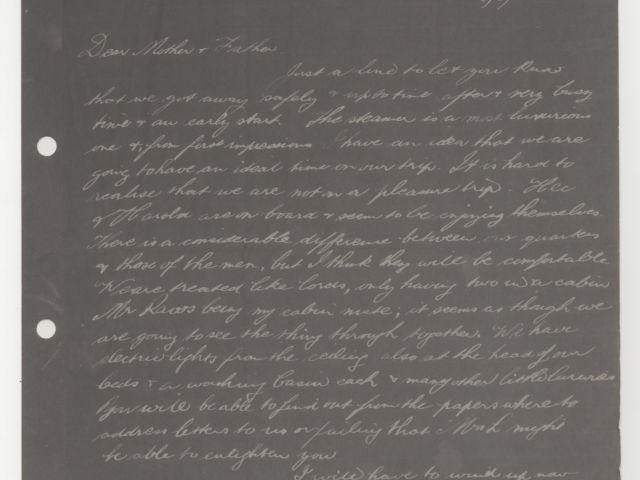 Dear Mother & Father
Just a line to let you know
that we got away safely & up to time after a very busy
time & an early start. The steamer is a most luxurious
one & from first impressions I have an idea that we are
going to have an ideal time on our trip. It is hard to
realise that we are not on a pleasure trip. Hec
& Harold are on board & seem to be enjoying themselves
There is a considerable difference between our quarters
& those of the men, but I think they will be comfortable
We are treated like lords, only having two in a cabin
Mr being my cabin mate; it seems as though we
are going to see the thing through together. We have
electric lights from the ceiling also at the head of our
beds & a washing basin each & many other little luxuries
You will be able to find out from the papers where to
address letters to us or failing that might
be able to enlighten you
I will have to wind up now